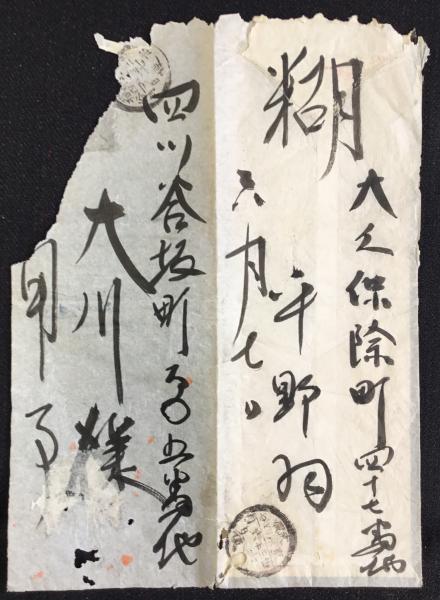 糊
大久保除町四十七番地
平野
六月七日
四ツ谷坂町百〇五番地
大川様
用事